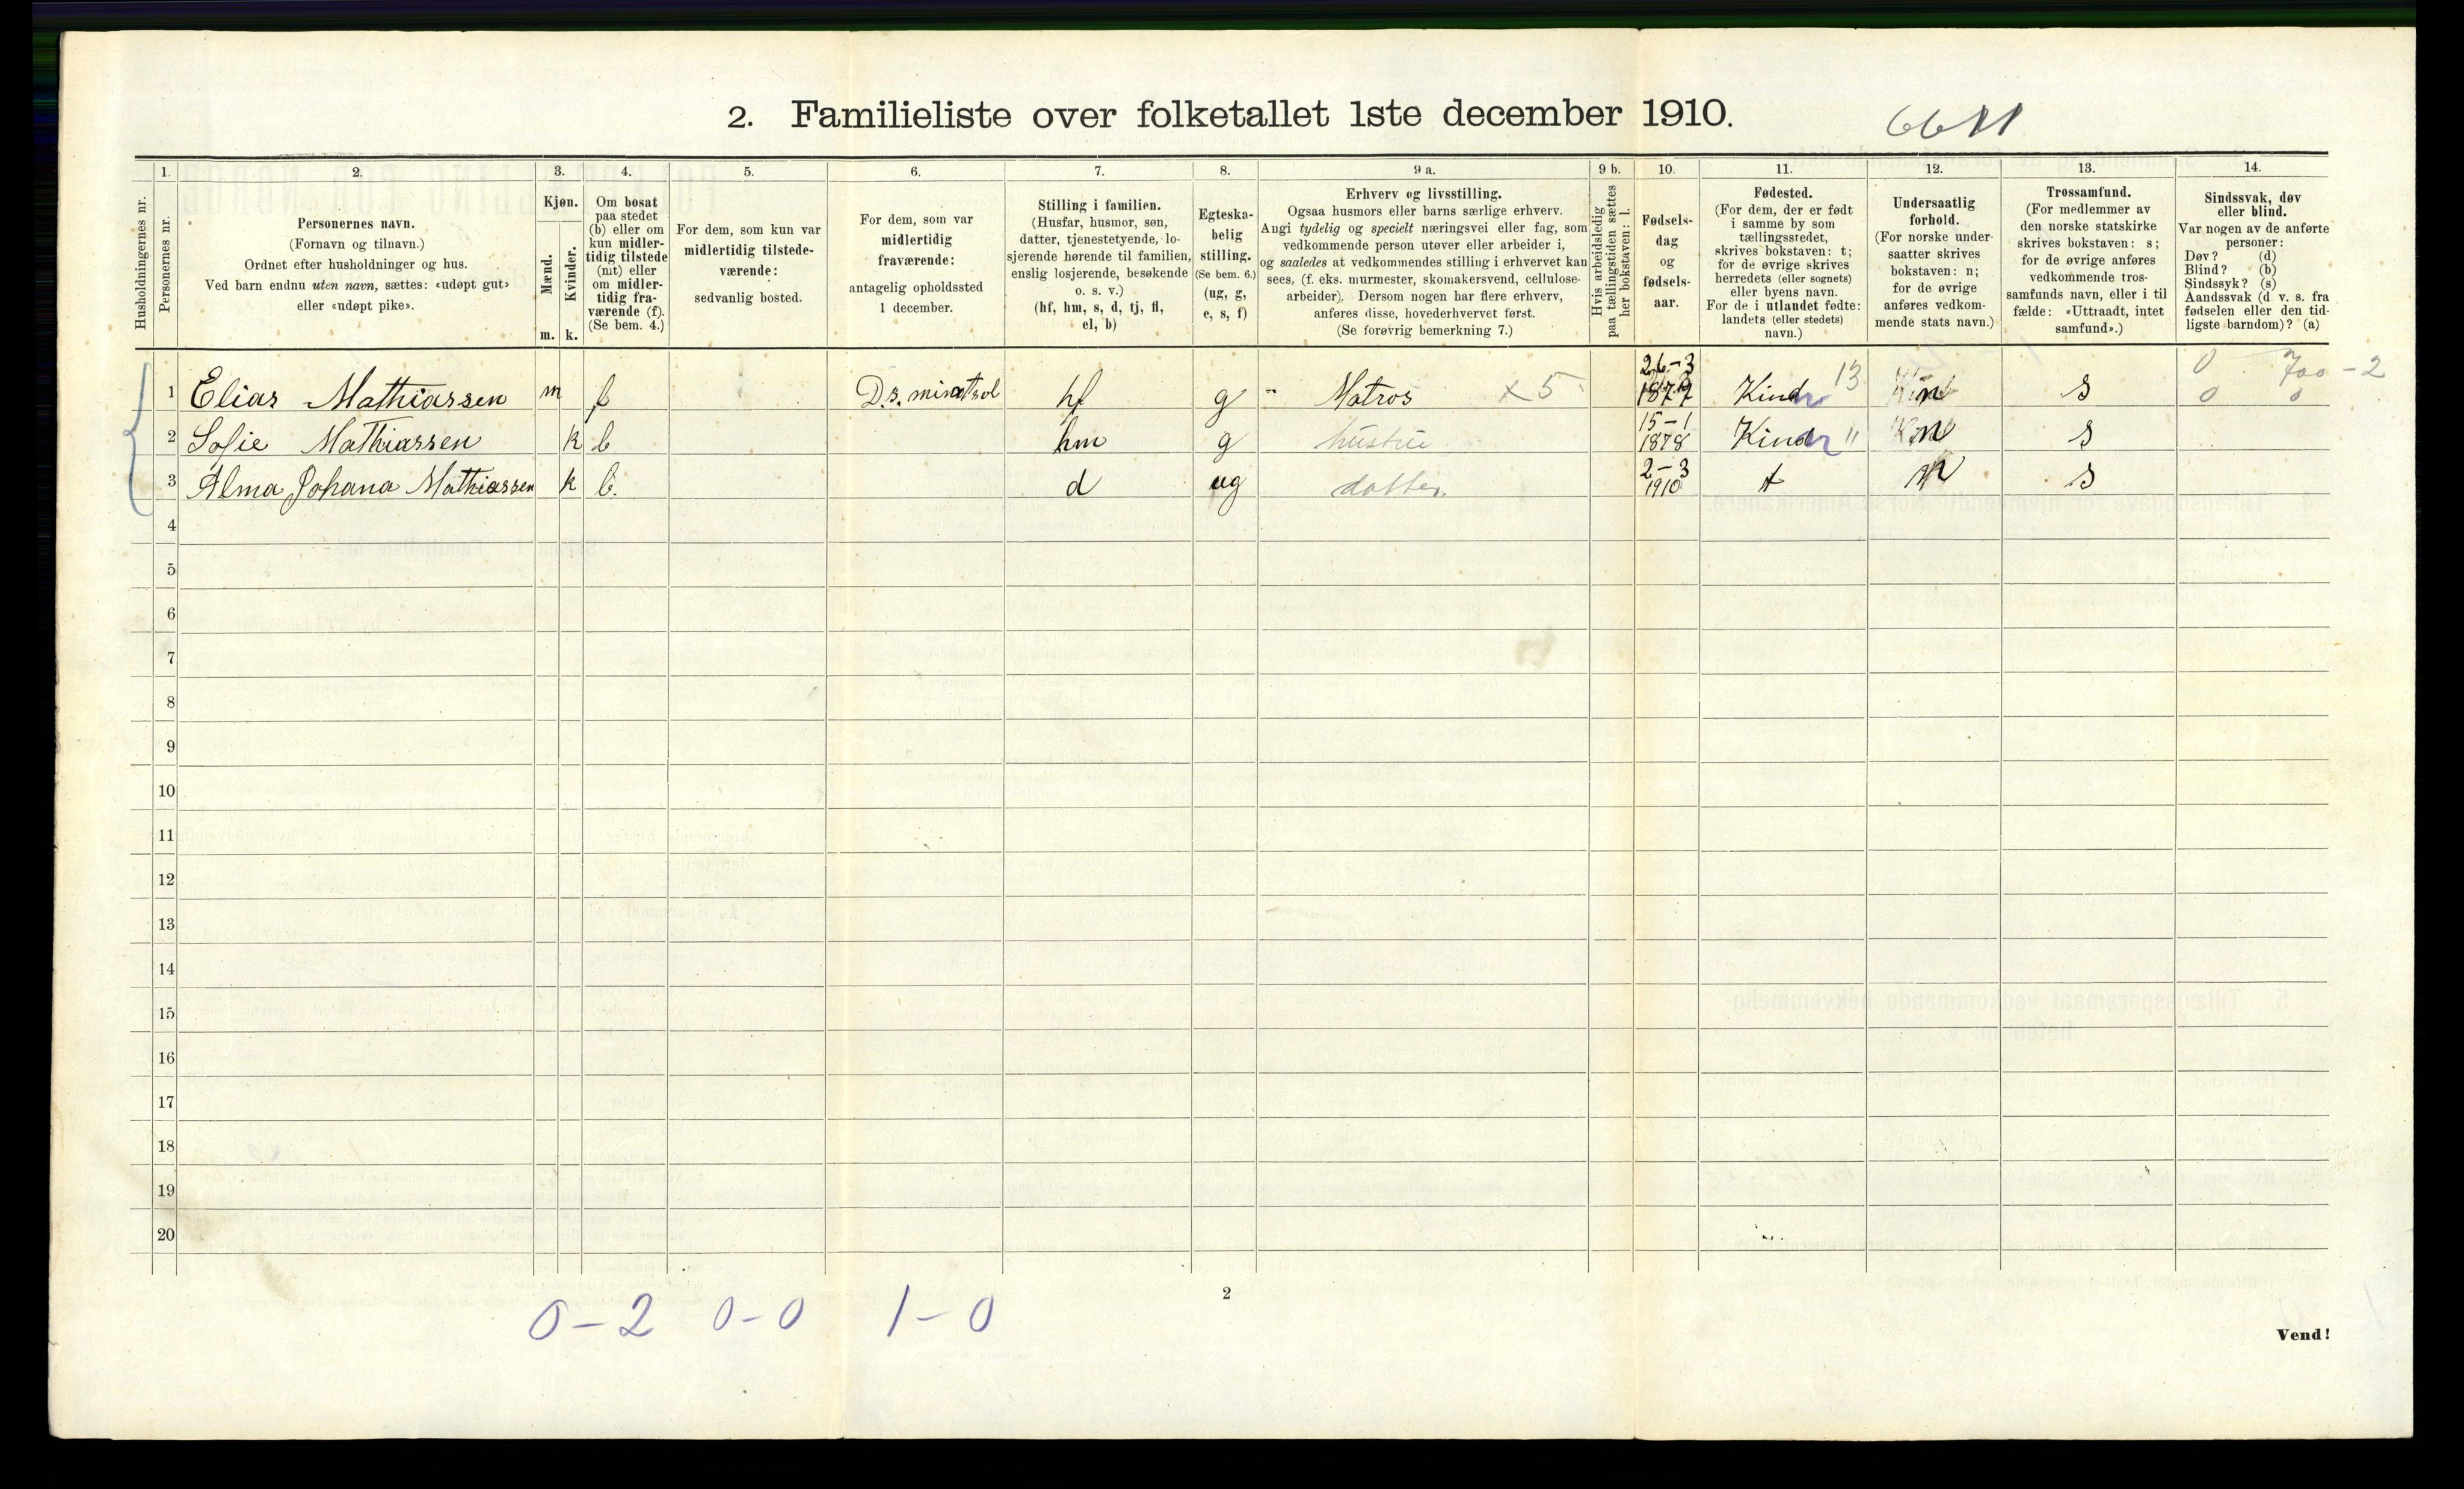 2. Familieliste over folketallet 1ste december 1910.
6611
Husholdningernes nr.
1.
Personernes nr.
2.
Personernes navn.
(Fornavn og tilnavn.)
Ordnet efter husholdninger og hus.
Ved barn endnu uten navn, sættes: «udøpt gut»
eller «udøpt pike».
3.
Kjøn.
Mænd.
Kvinder.
m. k.
4.
Om bosat
paa stedet
(b) eller om
kun midler-
tidig tilstede
(mt) eller
om midler-
tidig fra-
værende (f).
(Se bem. 4.)
5.
For dem, som kun var
midlertidig tilstede-
værende:
sedvanlig bosted.
6.
For dem, som var
midlertidig
fraværende:
antagelig opholdssted
1 december.
7.
Stilling i familien.
(Husfar, husmor, søn,
datter, tjenestetyende, lo-
sjerende hørende til familien,
enslig losjerende, besøkende
o. s. v.)
(hf, hm, s, d, tj, fl,
el, b)
8.
Egteska-
belig
stilling.
(Se bem. 6.)
(ug, g,
e, s, f)
9 a.
Erhverv og livsstilling.
Ogsaa husmors eller barns særlige erhverv.
Angi tydelig og specielt næringsvei eller fag, som
vedkommende person utøver eller arbeider i,
og saaledes at vedkommendes stilling i erhvervet kan
sees, (f. eks. murmester, skomakersvend, cellulose-
arbeider). Dersom nogen har flere erhverv,
anføres disse, hovederhvervet først.
(Se forøvrig bemerkning 7.)
9 b.
Hvis arbeidsledig
paa tællingstiden sættes
her bokstaven: l.
10.
Fødsels-
dag
og
fødsels-
aar.
11.
Fødested.
(For dem, der er født
i samme by som
tællingsstedet,
skrives bokstaven: t;
for de øvrige skrives
herredets (eller sognets)
eller byens navn.
For de i utlandet fødte:
landets (eller stedets)
navn.)
12.
Undersaatlig
forhold.
(For norske under-
saatter skrives
bokstaven: n;
for de øvrige
anføres vedkom-
mende stats navn.)
13.
Trossamfund.
(For medlemmer av
den norske statskirke
skrives bokstaven: s;
for de øvrige anføres
vedkommende tros-
samfunds navn, eller i til
fælde: «Uttraadt, intet
samfund».)
14.
Sindssvak, døv
eller blind.
Var nogen av de anførte
personer:
Døv? (d)
Blind? (b)
Sindssyk? (s)
Aandssvak (d. v. s. fra
fødselen eller den tid-
ligste barndom)? (a)
0 700-2
1 Elias Mathiassen m f hf g - Matros x 5 26-3 Kind 13 n s 0 0
2 Sofie Mathiassen k b hm g hustru 15-1 1878 Kind " n s
3 Alma Johana Mathiassen k b. d ug datter 2-3 1910 t n s
4
5
6
7
8
9
10
11
12
13
14
15
16
17
18
19
20
2
0-2 0-0 1-0
Vend!